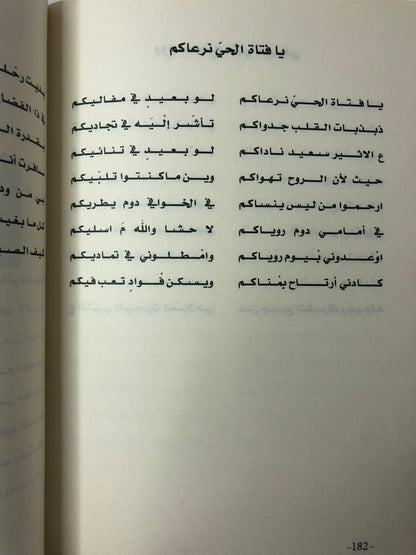 يا فتاة الحيّ نرعاكم
يا فتاة الحيّ نرعاكم لو بعيدٍ في مفاليكم
ذبذبات القلب جدواكم تأشّر إليه في تجاديكم
ع الاثير سعيد ناداكم لو بعيدٍ في تنائيكم
حيث لأن الروح تهواكم وين ماكنتوا تلبّيكم
ارحموا من ليس ينساكم في الخوافي دوم يطريكم
في أمامي دوم روياكم لا حشا والله مَ اسليكم
اوْعدوني بْيوم روياكم وامْطلوني في تماديكم
كادني أرتاح بمْناكم ويسكن فوادٍ تعب فيكم
-182-